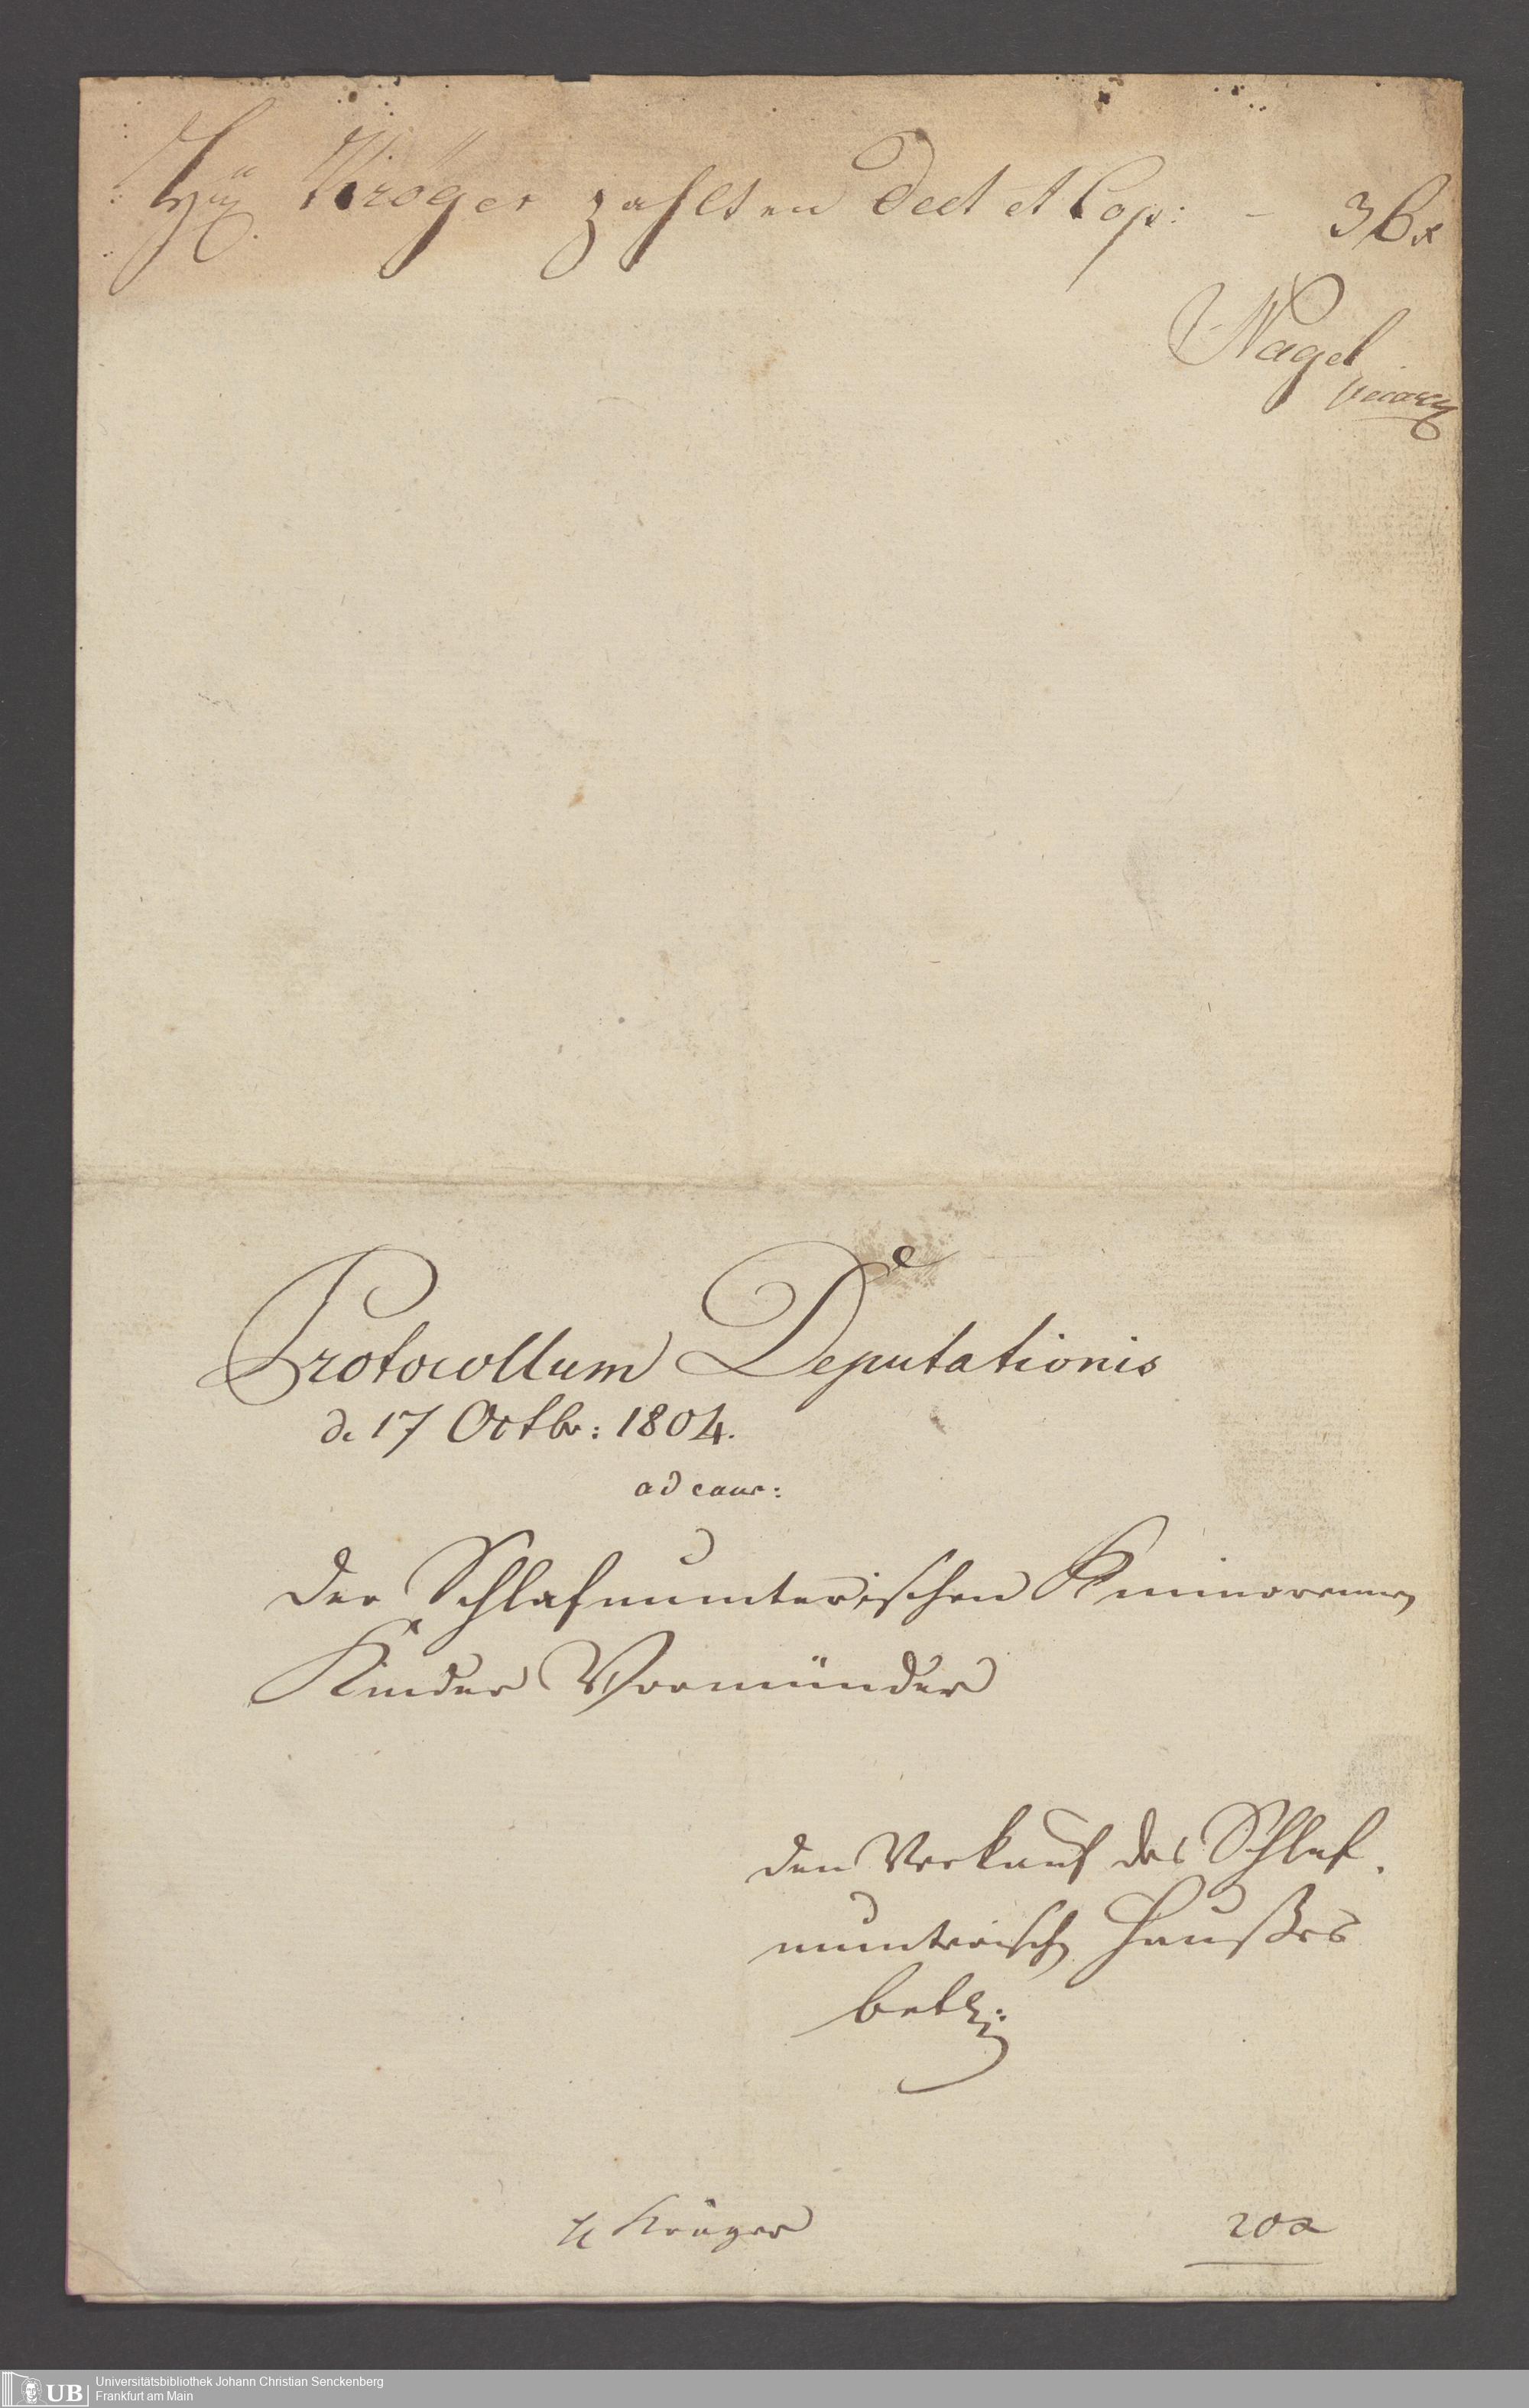 Kröger zahlt en Dect et Cop: – 36x
Nagel
Protocollum Deputationis
d. 17 Octbr: 1804.
ad caus:
der Schlafmunterischen minorennen
Kinder Vormünder
den Verkauf des Schlaf-
munterisch Haußes
betr:
H Kröger 20x
UB Universitätsbibliothek Johann Christian Senckenberg
Frankfurt am Main